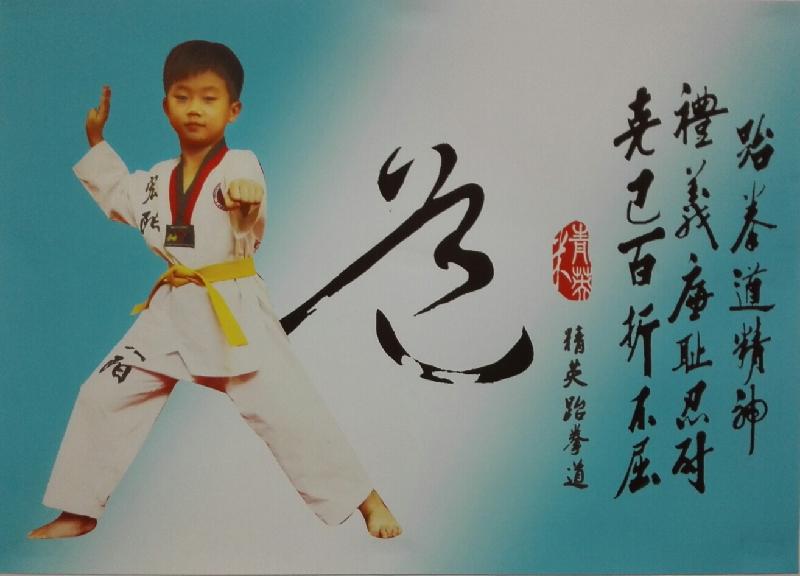 跆拳道精神
禮義廉恥忍耐
克己百折不屈
精英跆拳道
精英
道